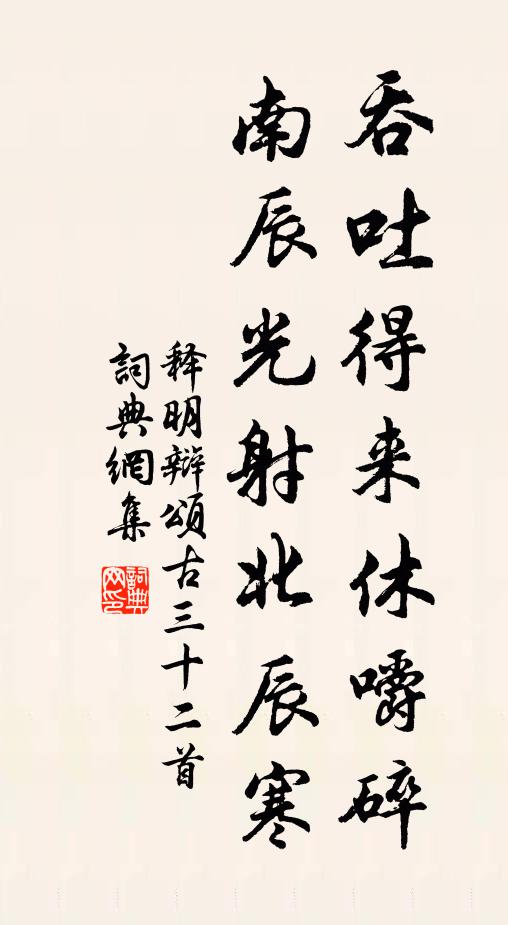 吞吐得来休嚼碎
南辰光射北辰寒
释明辩颂古三十二首
詞典網集
詞典网印